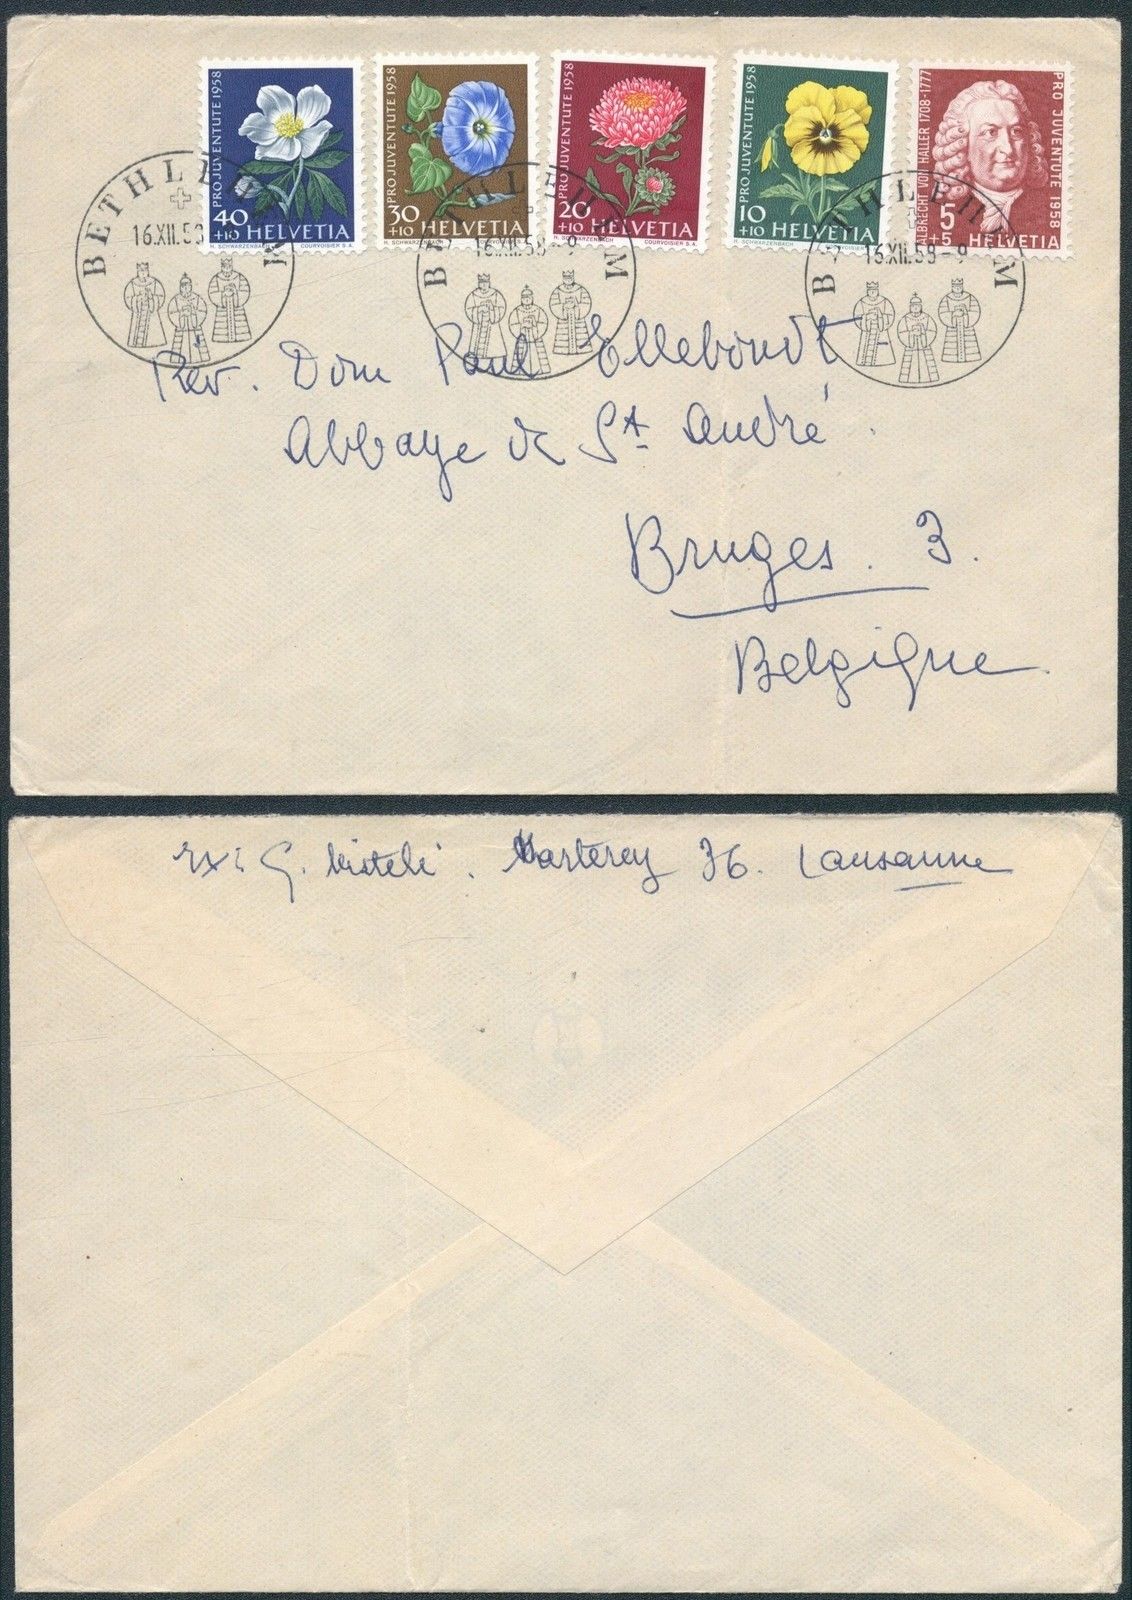 PRO JUVENTUTE 1958
40
+10 HELVETIA
COURVOISIER S.A.
PRO JUVENTUTE 1958
30
+10 HELVETIA
H. SCHWARZENBACH
PRO JUVENTUTE 1958
20
+10 HELVETIA
H. SCHWARZENBACH COURVOISIER S.A.
PRO JUVENTUTE 1958
10
+10 HELVETIA
H. SCHWARZENBACH
ALBRECHT VON HALLER 1708-1777
PRO JUVENTUTE 1958
5
+5 HELVETIA
BETHLEHEM
16.XII.58
BETHLEHEM
16.XII.58-9
BETHLEHEM
16.XII.58-9
Rev. Dom Paul Ellebondt
Abbaye de St André.
Bruges. 3.
Belgique
G. Misteli. Marterey 36. Lausanne